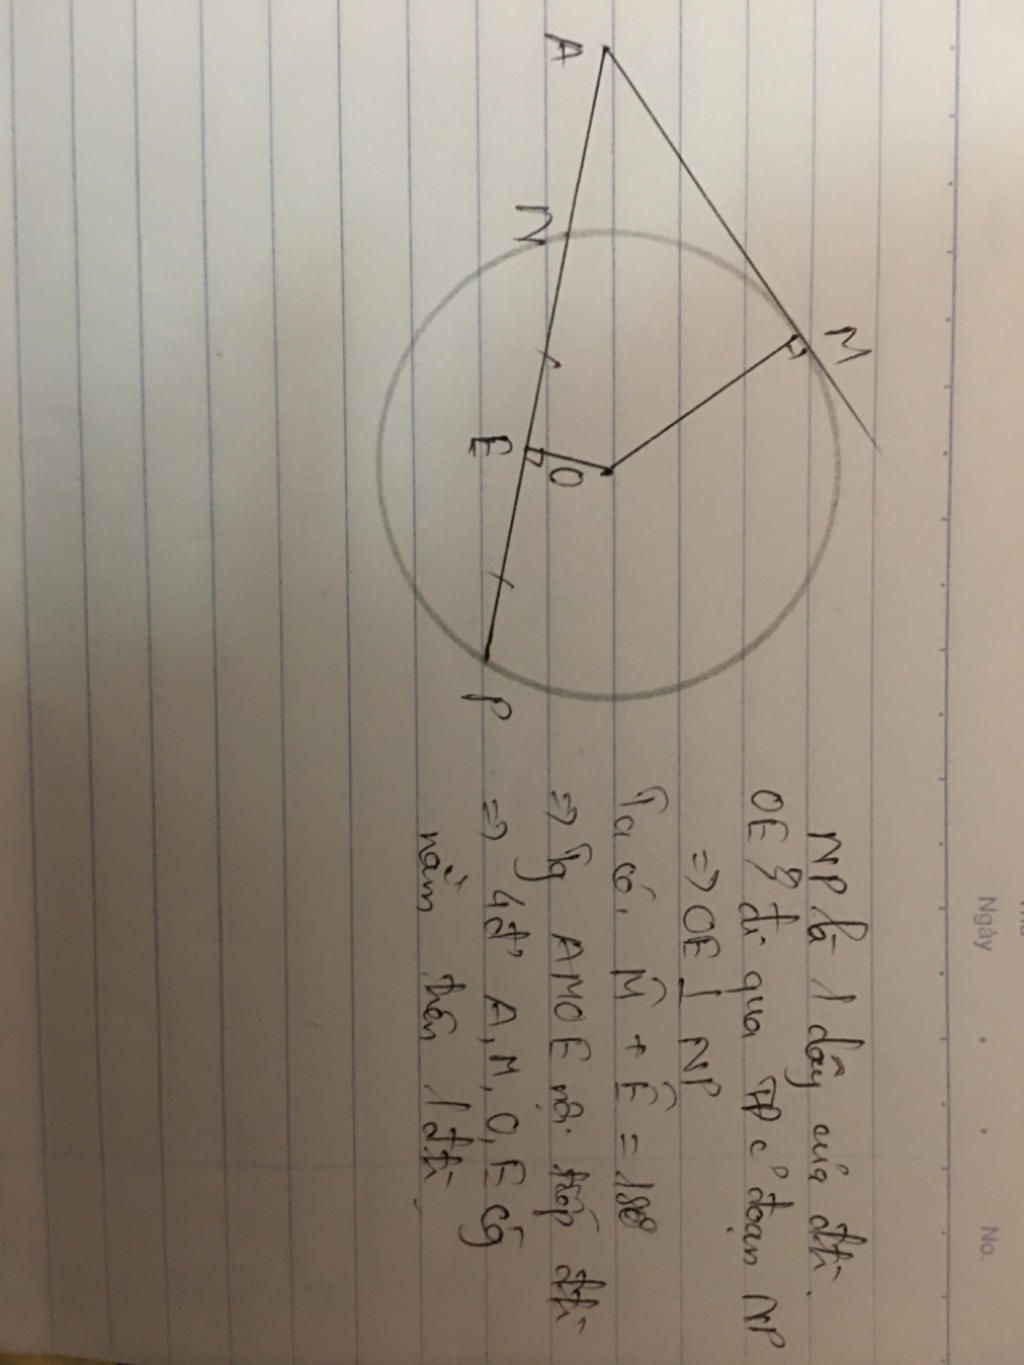 Ngày
No.
A
M
N
E
O
P
NP là 1 dây của đtr.
OE đi qua TĐ c' đoạn NP
=> OE ⊥ NP
Ta có, M̂ + Ê = 180
=> Tg AMOE nội tiếp đtr
=> 4đ' A, M, O, E cg
nằm trên 1 đtr